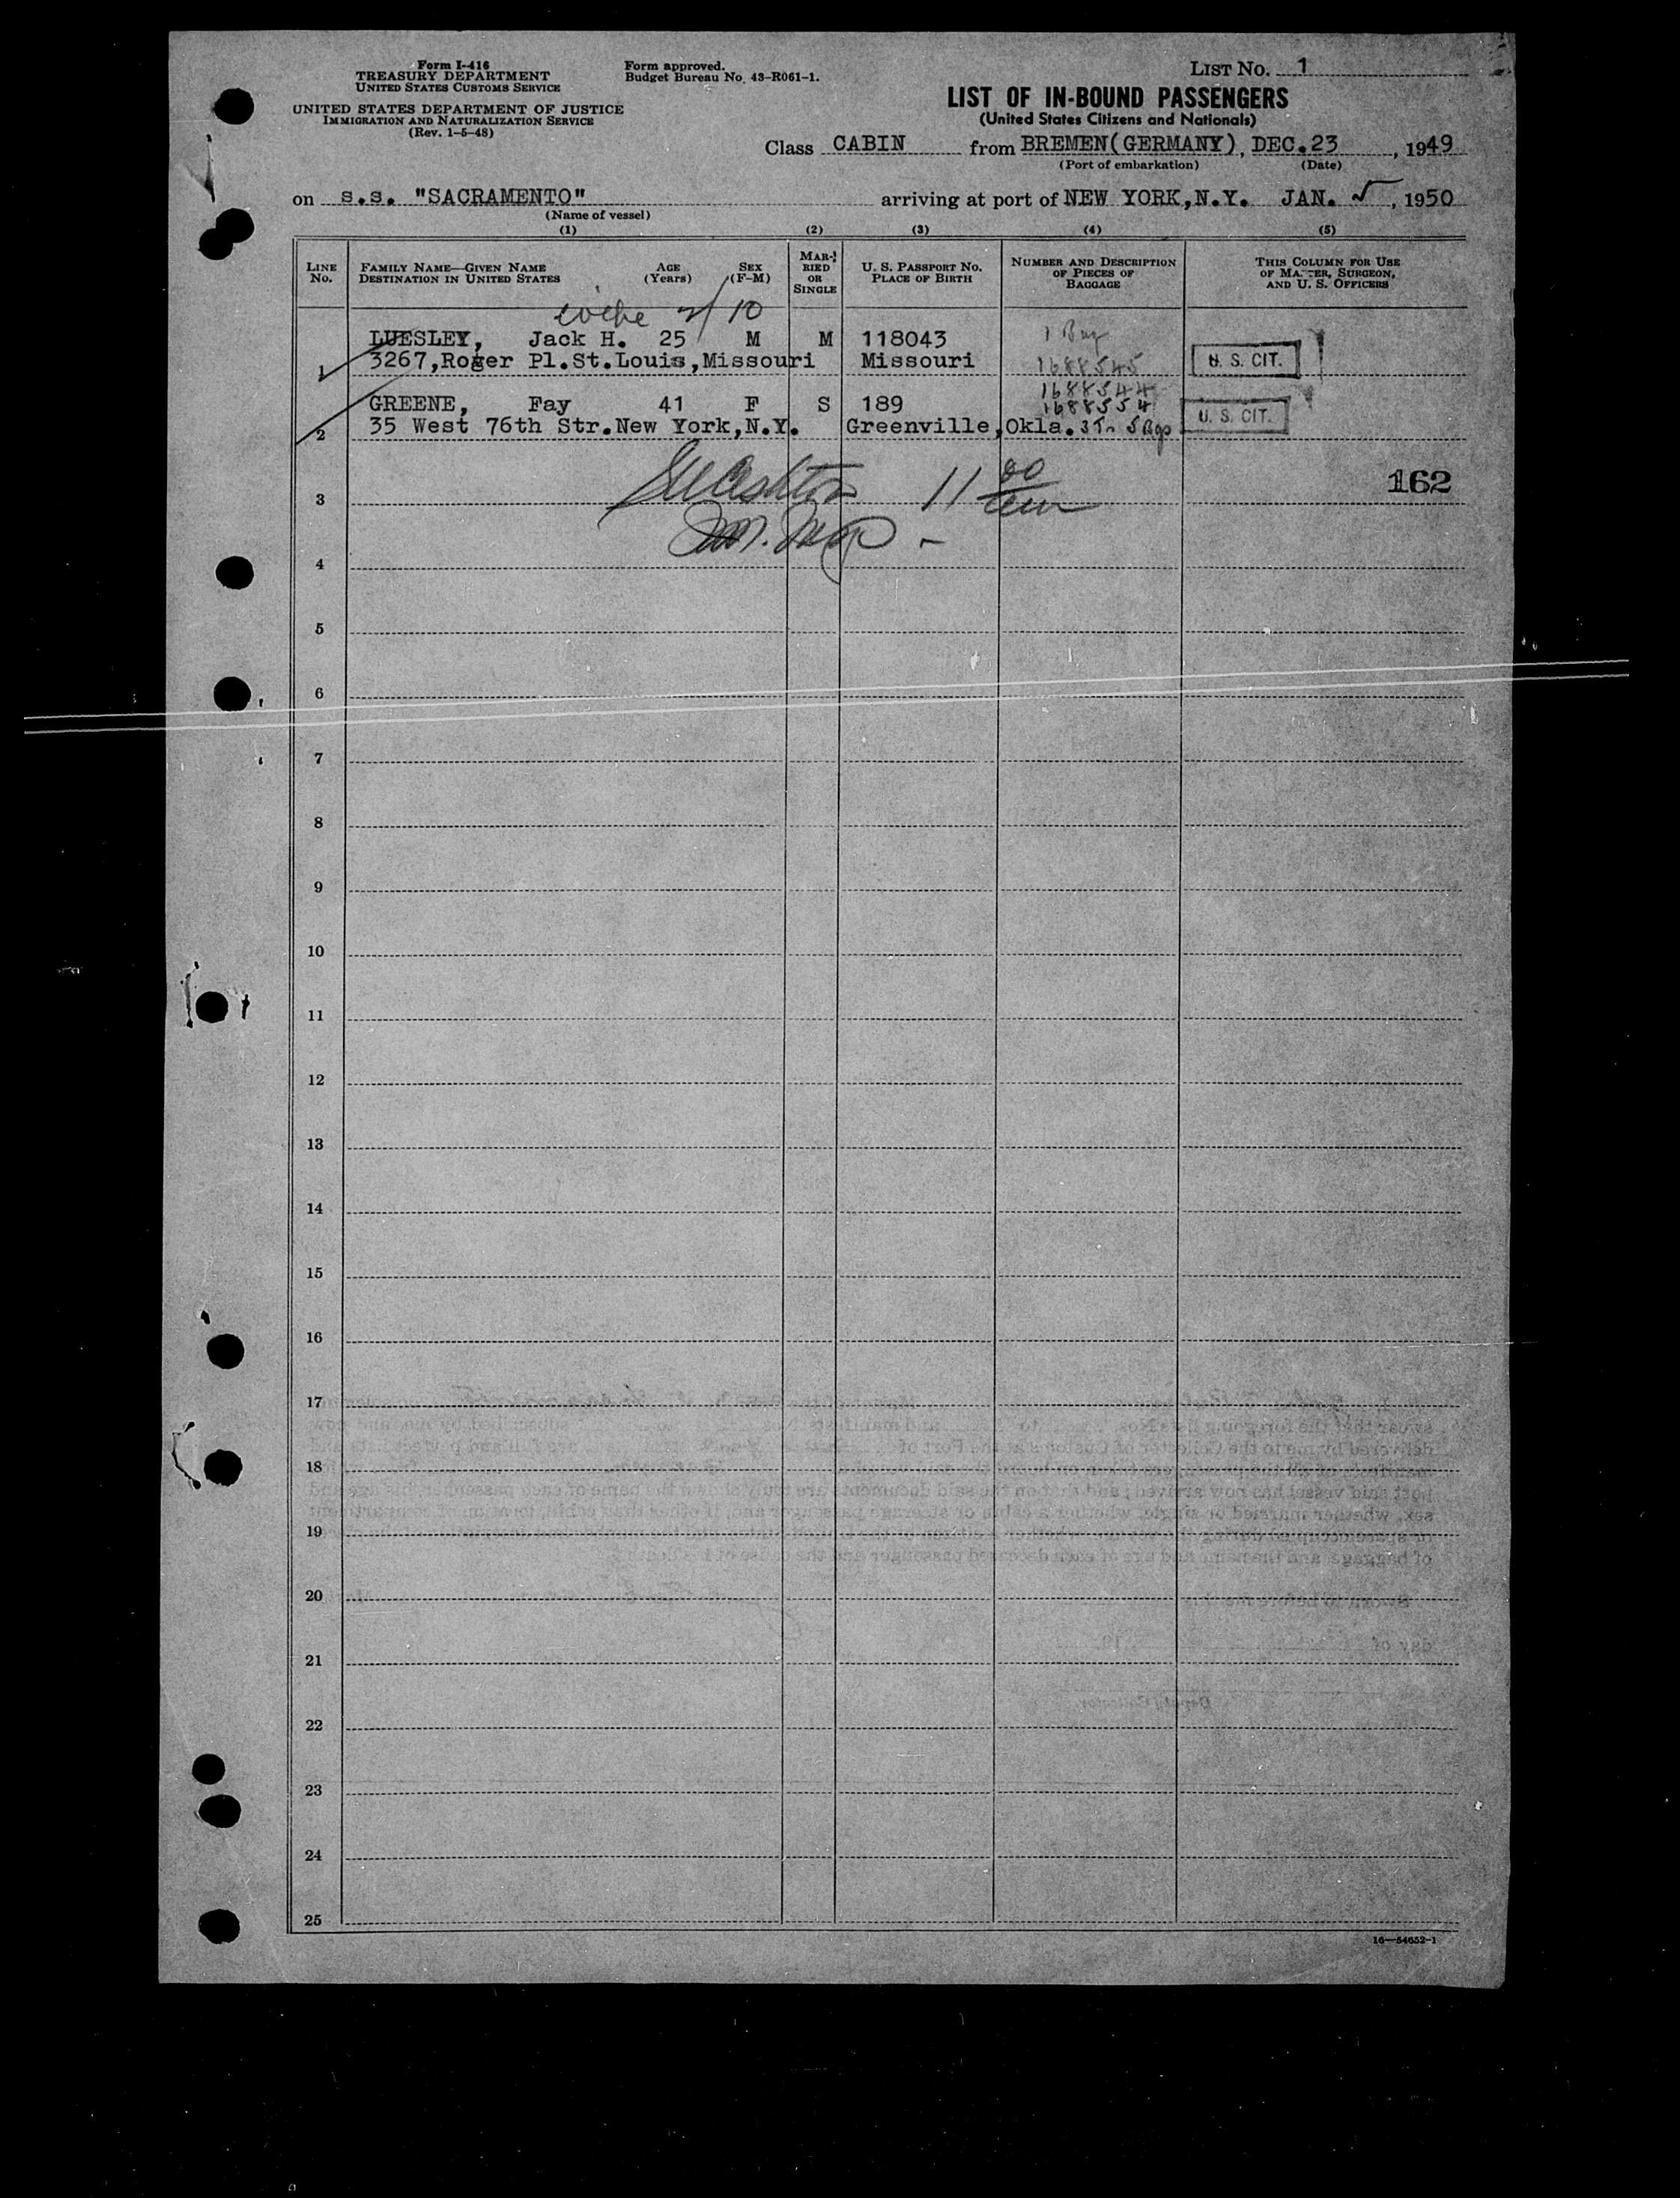 Form I-416
TREASURY DEPARTMENT
UNITED STATES CUSTOMS SERVICE
UNITED STATES DEPARTMENT OF JUSTICE
IMMIGRATION AND NATURALIZATION SERVICE
(Rev. 1-5-48)
Form approved.
Budget Bureau No. 43-R061-1.
LIST NO. 1
LIST OF IN-BOUND PASSENGERS
(United States Citizens and Nationals)
Class CABIN from BREMEN(GERMANY), DEC.23, 1949
(Port of embarkation) (Date)
on s.s. "SACRAMENTO" arriving at port of NEW YORK,N.Y. JAN. 5, 1950
(Name of vessel)
(1) (2) (3) (4) (5)
LINE No. FAMILY NAME—GIVEN NAME DESTINATION IN UNITED STATES AGE (Years) SEX (F-M) MARRIED OR SINGLE U. S. PASSPORT NO. PLACE OF BIRTH NUMBER AND DESCRIPTION OF PIECES OF BAGGAGE THIS COLUMN FOR USE OF MASTER, SURGEON, AND U. S. OFFICERS
10
LUESLEY, Jack H. 25 M M 118043 1 Bag
1 3267,Roger Pl.St.Louis,Missouri Missouri 1688545 U. S. CIT.
1688544
GREENE, Fay 41 F S 189 1688554
2 35 West 76th Str.New York,N.Y. Greenville,Okla. 3 Tr 5 Bgs U. S. CIT.
162
3 11 00
4
5
6
7
8
9
10
11
12
13
14
15
16
17
18
19
20
21
22
23
24
25
16—54652-1